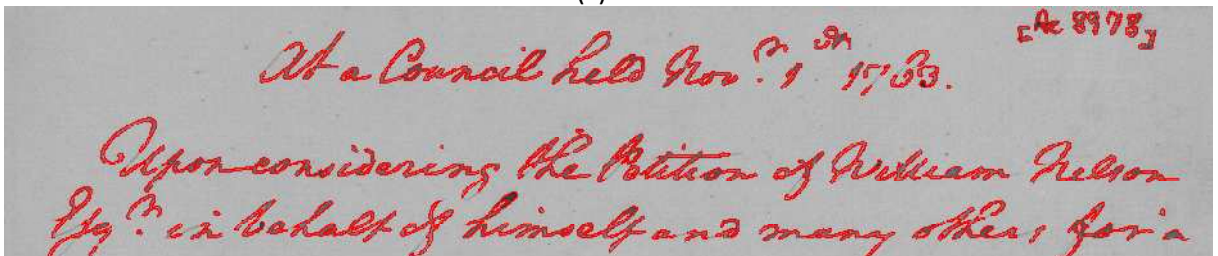 [Ac 8973]
At a Council held Novr. 1st 1763.
Upon considering the Petition of William Nelson
Esqr. in behalf of himself and many others, for a